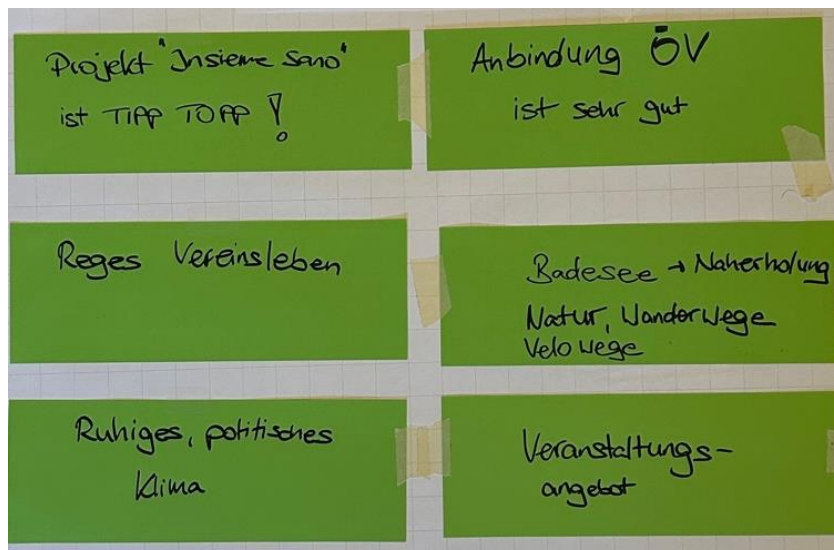 Projekt "Insieme Sano"
ist TIPP TOPP !
Anbindung ÖV
ist sehr gut
Reges Vereinsleben
Badesee → Naherholung
Natur, Wanderwege
Velowege
Ruhiges, politisches
Klima
Veranstaltungs-
angebot